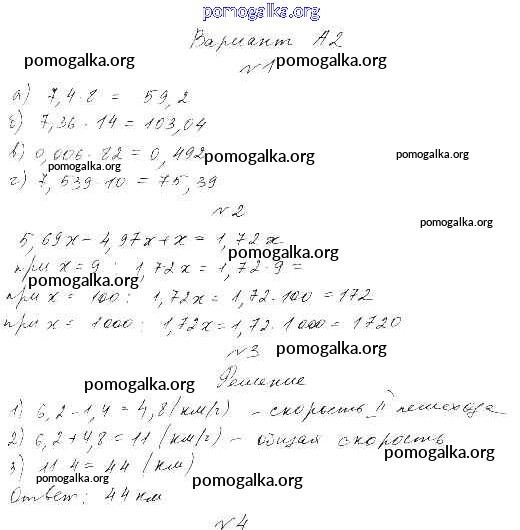 pomogalka.org
Вариант А2
pomogalka.org
№1 pomogalka.org
а) 7,4·8 = 59,2
б) 7,36·14 = 103,04
в) 0,006·82 = 0,492 pomogalka.org pomogalka.org
pomogalka.org
г) 7,539·10 = 75,39
№2
pomogalka.org
5,69х - 4,97х + х = 1,72х
pomogalka.org
при х = 9: 1,72х = 1,72·9 =
pomogalka.org
при х = 100: 1,72х = 1,72·100 = 172
при х = 1000: 1,72х = 1,72·1000 = 1720
№3 pomogalka.org
Решение
pomogalka.org
1) 6,2 - 1,4 = 4,8 (км/ч) - скорость II пешехода
2) 6,2 + 4,8 = 11 (км/ч) - общая скорость
pomogalka.org
3) 11·4 = 44 (км)
pomogalka.org pomogalka.org
Ответ: 44 км
№4 pomogalka.org